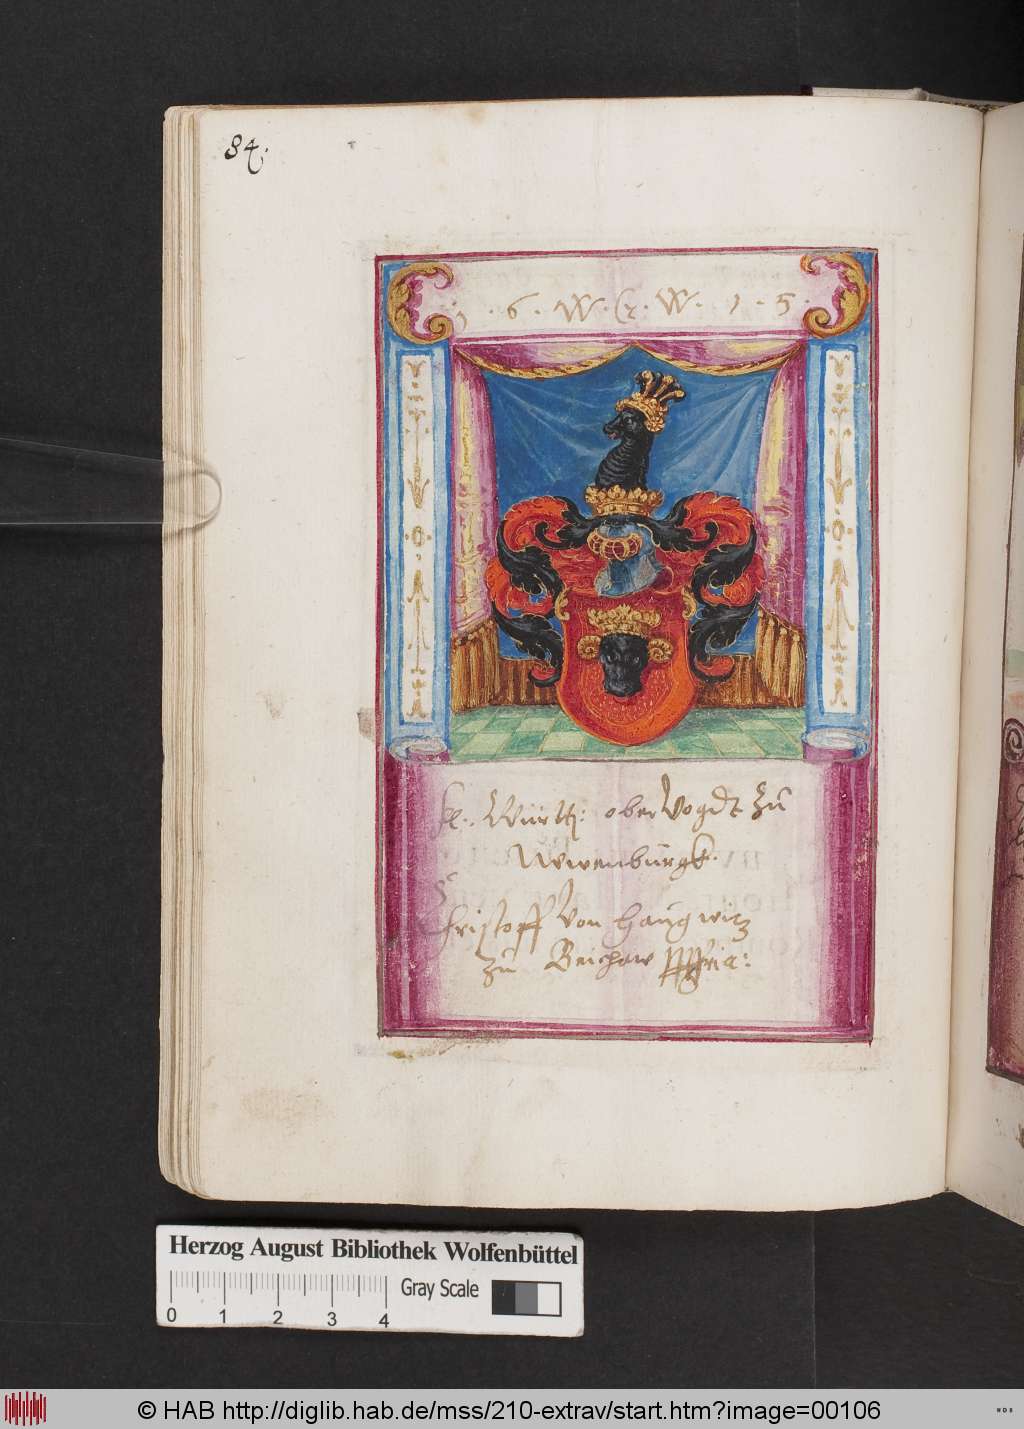 84.
1 · 6 · W · G · W · 1 · 5 ·
fl: Württ: ober Vogdt zu
Newenburgk.
Christoff Von Haugwitz
zu
Herzog August Bibliothek Wolfenbüttel
Gray Scale
0 1 2 3 4
© HAB http://diglib.hab.de/mss/210-extrav/start.htm?image=00106